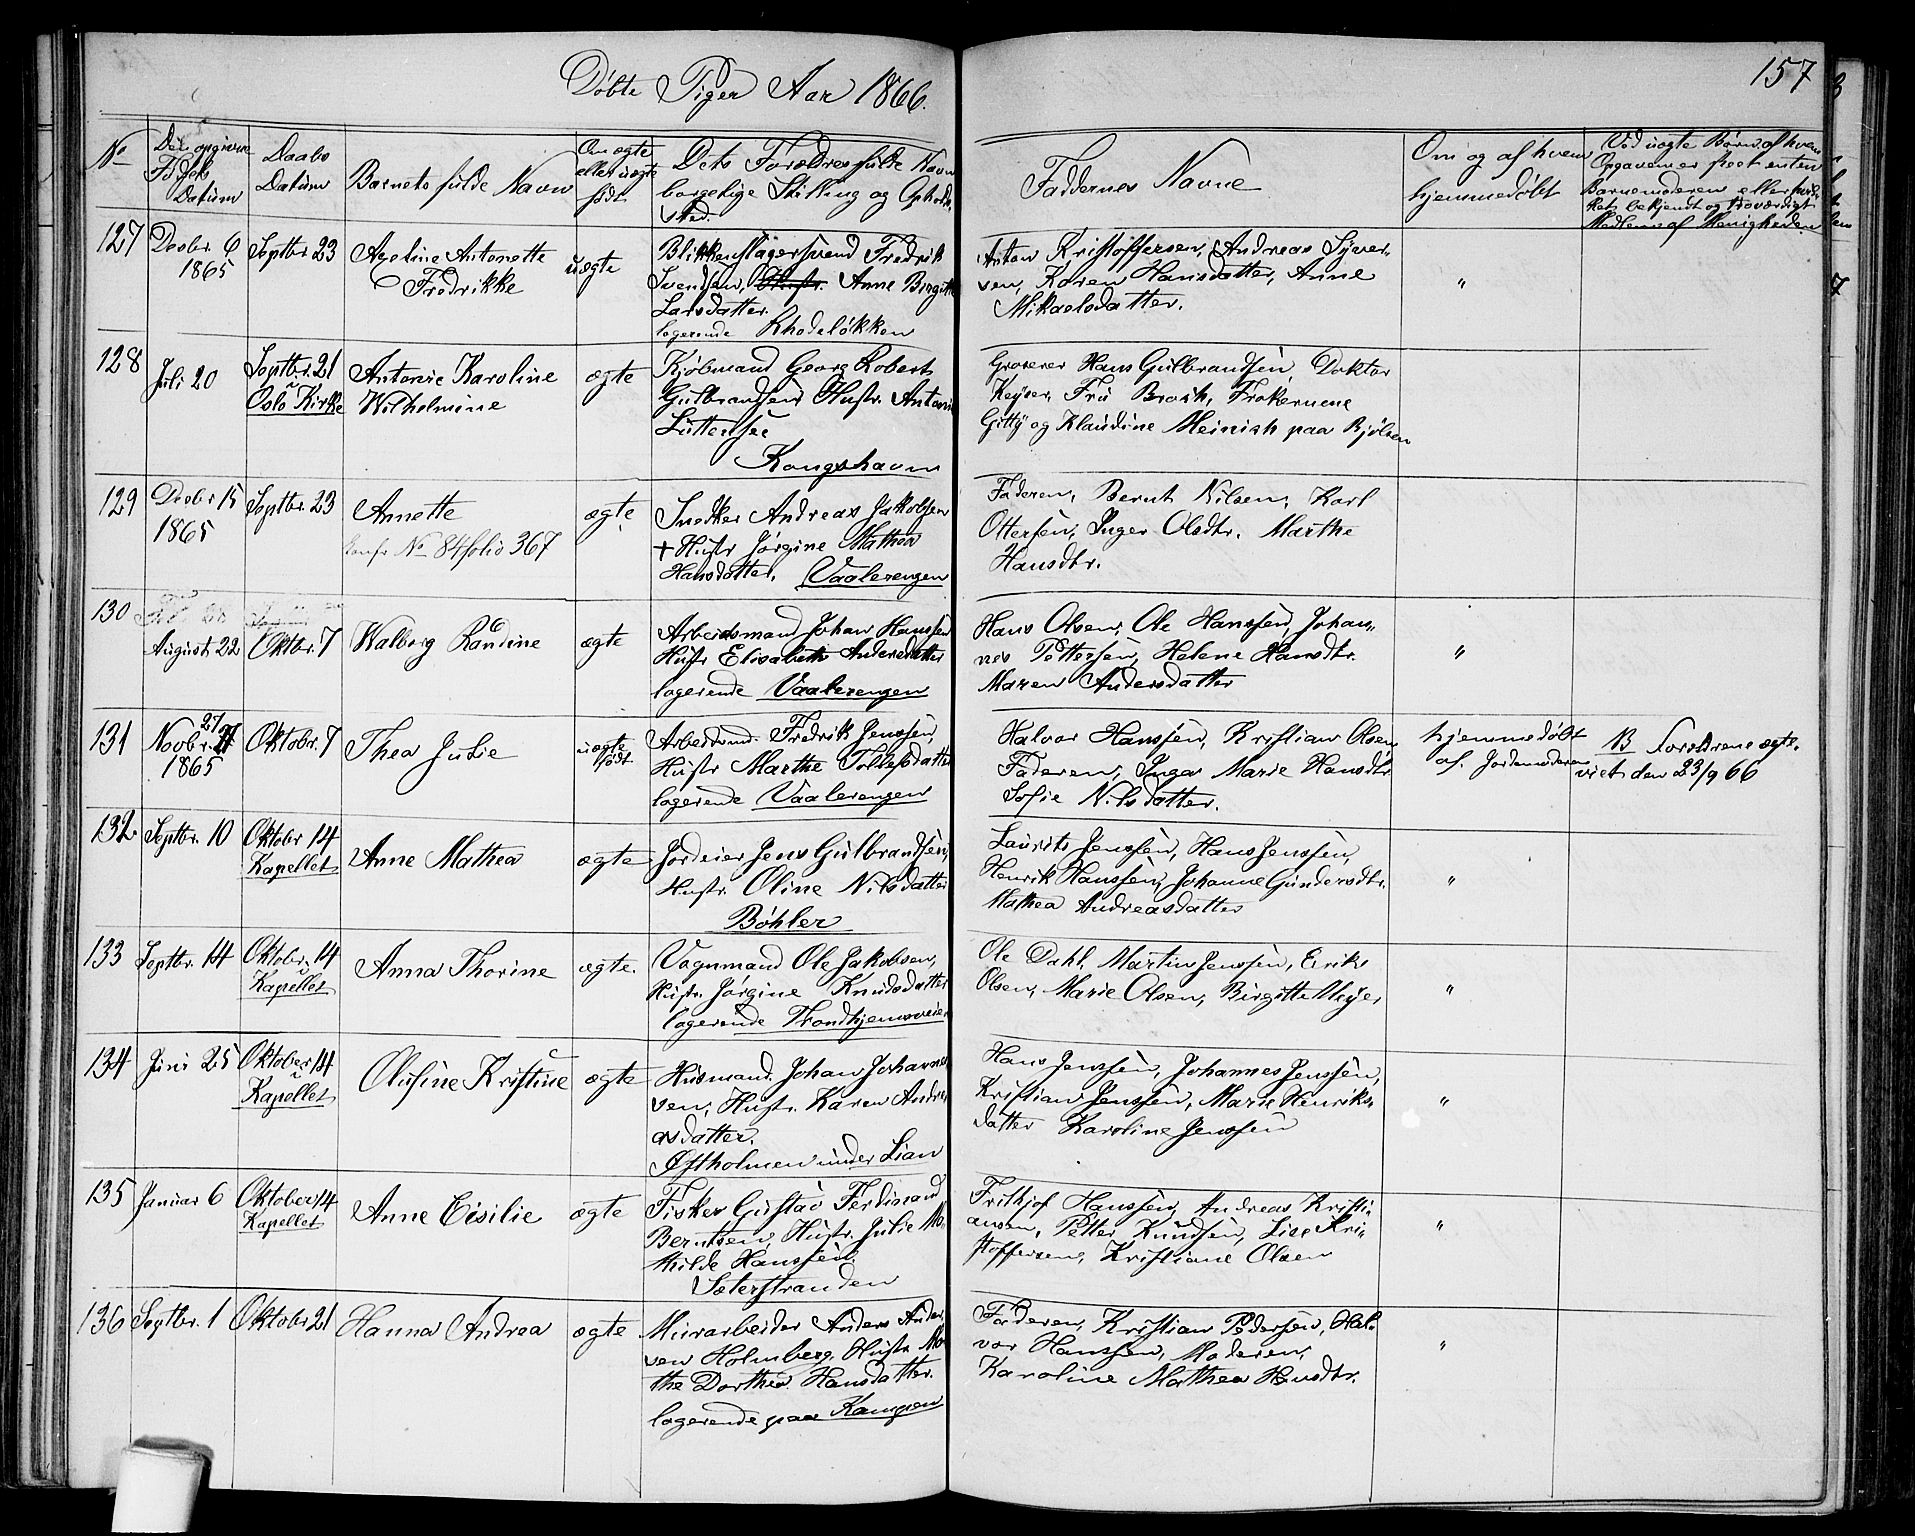 Døbte Piger Aar 1866.
157
No
Det opgivne
Fødsels
Datum
Daabs
Datum
Barnets fulde Navn
Om ægte
eller uægte
født
Dets Forældres fulde Navn
borgelige Stilling og Opholds
sted.
Faddernes Navne
Om og af hvem
hjemmedøbt
Ved uægte Børn af hvem
Opgaven er skeet enten
Barnemoderen eller
ket bekjendt og troværdigt
Medlem af Menigheden
127
Decbr. 6
1865
Septbr 23
Ageline Antonette
Fredrikke
uægte
Blikkenslagersvend Fredrik
Svendsen, Hustr. Anne Birgitte
Larsdatter.
logerende Rhodeløkken
Anton Kristoffersen, Andreas Syver-
sen, Karen Hansdatter, Anne
Mikaelsdatter.
"
128
Juli 20
Septbr. 21
Oslo Kirke
Antonie Karoline
Wilhelmine
ægte
Kjøbmand Georg Robert
Gulbrandsen Hustr. Antonie
Lüttensee
Kongshavn
Groserer Hans Gulbrandsen, Doktor
Keyser, Fru Brock, Frøknerne
Gitty og Klaudine Meinich paa Bjølsen
129
Decbr 15
1865
Septbr. 23
Annette
Konfr No 84 folio 367
ægte
Snedker Andreas Jakobsen
+ Hustr Jørgine Mathea
Hansdatter. Vaalerengen
Faderen, Bernt Nilsen, Karl
Ottersen, Inger Olsdtr. Marthe
Hansdtr.
130
August 22
Oktbr. 7
Walborg Randine
ægte
Arbeidsmand Johan Hanssen
Hustr Elisabeth Andersdatter
logerende Vaalerengen
Hans Olsen, Ole Hanssen, Johan-
nes Pettersen, Helene Hansdtr.
Maren Andersdatter
"
131
Novbr. 27
1865
Oktobr. 7
Thea Julie
uægte
født
Arbeidsmd. Fredrik Jenssen,
Hustr Marthe Tollefsdatter
logerende Vaalerengen
Halvor Hanssen, Kristian Olsen
Faderen, Inger Marie Hansdtr
Sofie Nilsdatter.
hjemmedøbt
af Jordemoderen
B Forældrene ægte-
viet den 23/9 66
132
Septbr. 10
Oktobr 14
Kapellet
Anne Mathea
ægte
Jordeier Jens Gulbrandsen,
Hustr. Oline Nilsdatter
Bøhler
Laurits Jenssen, Hans Jenssen,
Henrik Hanssen, Johanne Gundersdtr.
Mathea Andreasdatter
"
133
Septbr. 14
Oktobr. 14
Kapellet
Anna Thorine
ægte.
Vognmand Ole Jakobsen,
Hustr. Jørgine Knudsdatter
logerende Trondhjemsveien
Ole Dahl, Martin Jenssen, Erik
Olsen, Marie Olsen, Birgitte Meyer
"
134
Juni 25
Oktober 14
Kapellet
Olufine Kristine
ægte
Husmand. Johan Johanne-
sen, Hustr. Karen Andre-
asdatter.
Østholmen under Lian
Hans Jenssen, Johannes Jenssen,
Kristian Jenssen, Marie Henriks-
datter Karoline Jenssen
"
135
Januar 6
Oktober 14
Kapellet
Anne Cisilie
ægte
Fisker Gustav Ferdinand
Berntsen, Hustr. Julie Ma-
thilde Hanssen
Sæterstranden
Frithjof Hanssen, Andreas Kristi-
ansen, Petter Knudsen, Lise Kri-
stoffersen, Kristiane Olsen
"
136
Septbr. 1
Oktobr 21
Hanna Andrea
ægte
Murarbeider Anders Ander-
sen Holmberg, Hustr. Ma-
the Dorthea Hansdatter.
logerende paa Kampen
Faderen, Kristian Pedersen, Hal-
vor Hanssen, Moderen,
Karoline Mathea Hansdtr.
"